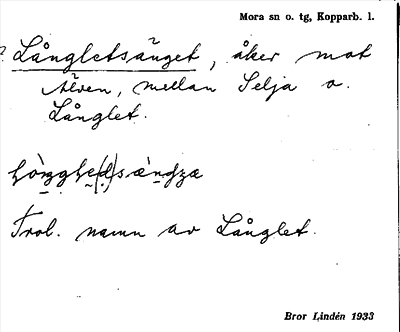 Mora sn o. tg, Kopparb. l.
Långletsänget, åker mot
älven, mellan Selja o.
Långlet.
Trol. namn av Långlet.
Bror Lindén 1933